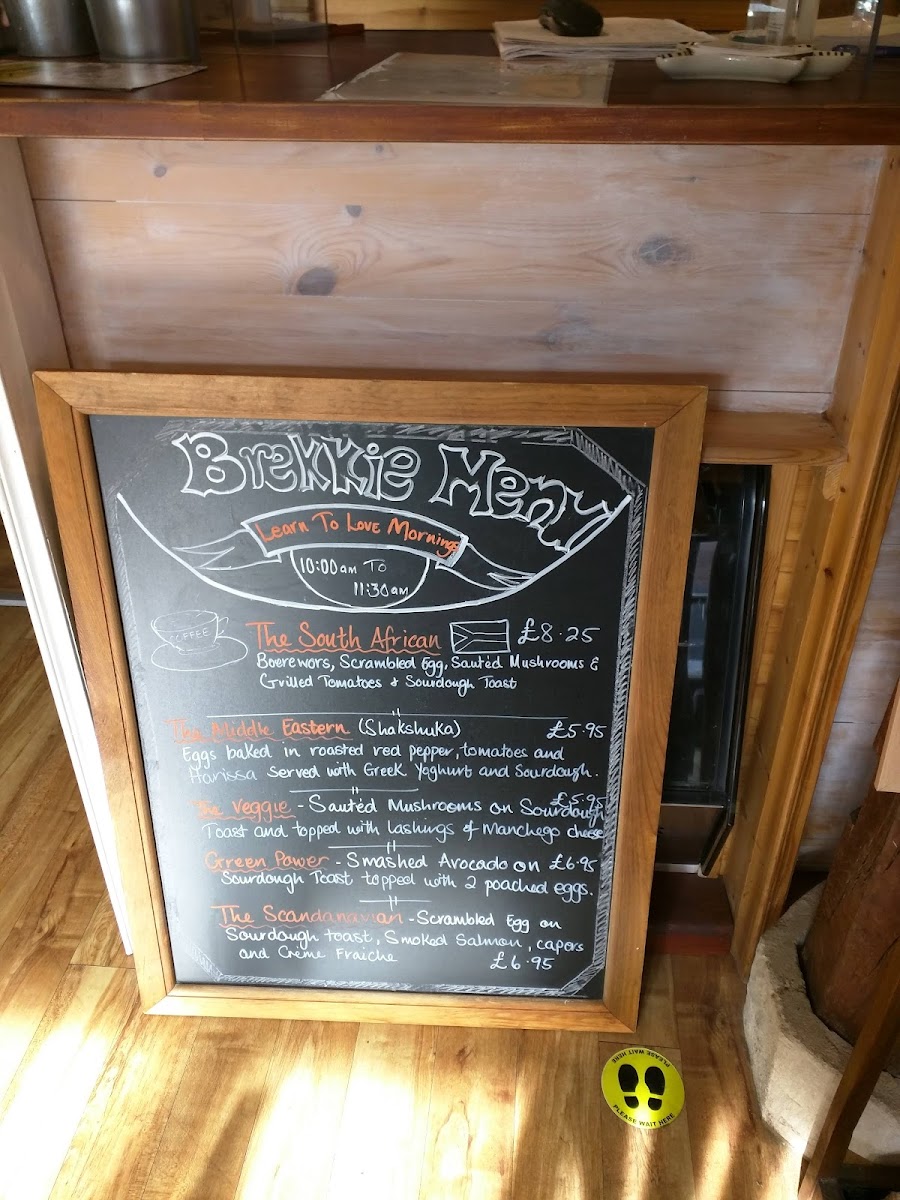 Brekkie Menu
Learn To Love Mornings
10:00am To
11:30am
COFFEE
The South African £8.25
Boerewors, Scrambled Egg, Sautéd Mushrooms &
Grilled Tomatoes + Sourdough Toast
The Middle Eastern (Shakshuka) £5.95
Eggs baked in roasted red pepper, tomatoes and
Harissa served with Greek Yoghurt and Sourdough.
The Veggie - Sautéd Mushrooms on Sourdough £5.95
Toast and topped with lashings of Manchego cheese
Green Power - Smashed Avocado on £6.95
Sourdough Toast topped with 2 poached eggs.
The Scandanavian - Scrambled Egg on
Sourdough toast, Smoked Salmon, capors
and Crème Fraiche £6.95
PLEASE WAIT HERE
PLEASE WAIT HERE